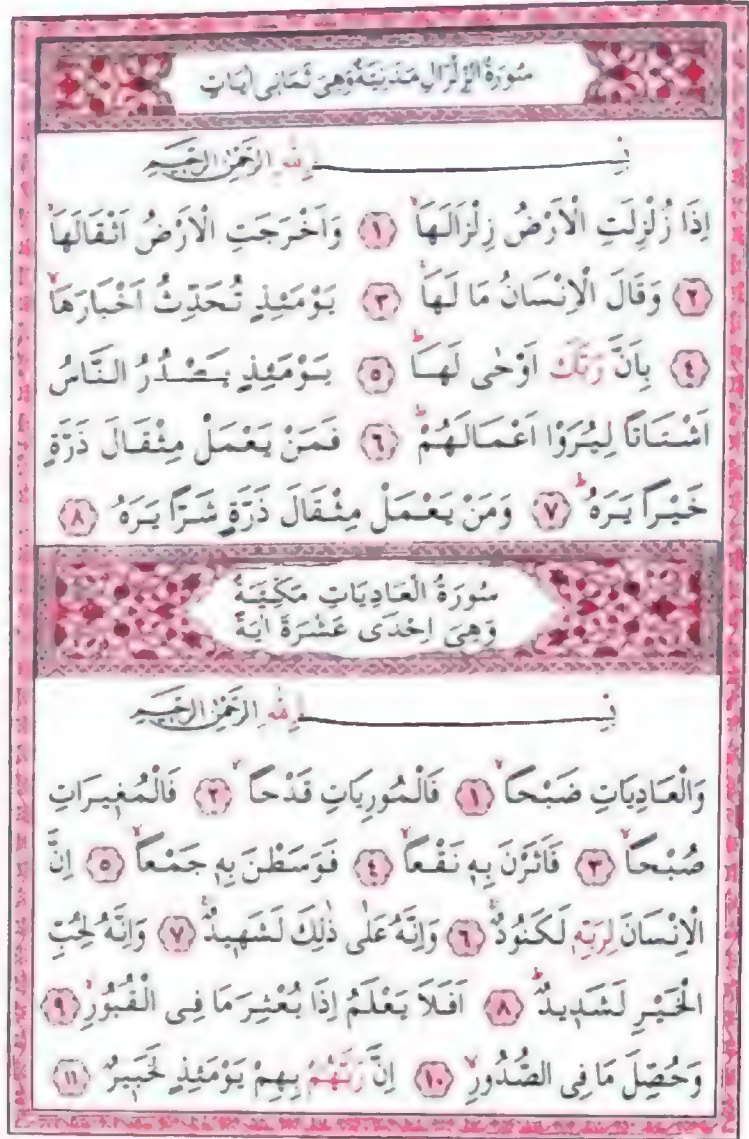 سُورَةُ الزِّلْزَالِ مَدَنِيَّةٌ وَهِيَ ثَمَانِي اٰيَاتٍ
بِسْمِ اللّٰهِ الرَّحْمٰنِ الرَّحِيمِ
اِذَا زُلْزِلَتِ الْاَرْضُ زِلْزَالَهَاۙ ﴿١﴾ وَاَخْرَجَتِ الْاَرْضُ اَثْقَالَهَاۙ
﴿٢﴾ وَقَالَ الْاِنْسَانُ مَا لَهَاۚ ﴿٣﴾ يَوْمَئِذٍ تُحَدِّثُ اَخْبَارَهَاۙ
﴿٤﴾ بِاَنَّ رَبَّكَ اَوْحٰى لَهَاۜ ﴿٥﴾ يَوْمَئِذٍ يَصْدُرُ النَّاسُ
اَشْتَاتًا لِيُرَوْا اَعْمَالَهُمْۜ ﴿٦﴾ فَمَنْ يَعْمَلْ مِثْقَالَ ذَرَّةٍ
خَيْرًا يَرَهُۜ ﴿٧﴾ وَمَنْ يَعْمَلْ مِثْقَالَ ذَرَّةٍ شَرًّا يَرَهُ ﴿٨﴾
سُورَةُ الْعَادِيَاتِ مَكِّيَّةٌ
وَهِيَ اِحْدَى عَشْرَةَ اٰيَةً
بِسْمِ اللّٰهِ الرَّحْمٰنِ الرَّحِيمِ
وَالْعَادِيَاتِ ضَبْحًاۙ ﴿١﴾ فَالْمُورِيَاتِ قَدْحًاۙ ﴿٢﴾ فَالْمُغِيرَاتِ
صُبْحًاۙ ﴿٣﴾ فَاَثَرْنَ بِهِ نَقْعًاۙ ﴿٤﴾ فَوَسَطْنَ بِهِ جَمْعًاۙ ﴿٥﴾ اِنَّ
الْاِنْسَانَ لِرَبِّهِ لَكَنُودٌۚ ﴿٦﴾ وَاِنَّهُ عَلٰى ذٰلِكَ لَشَهِيدٌۚ ﴿٧﴾ وَاِنَّهُ لِحُبِّ
الْخَيْرِ لَشَدِيدٌۜ ﴿٨﴾ اَفَلَا يَعْلَمُ اِذَا بُعْثِرَ مَا فِى الْقُبُورِۙ ﴿٩﴾
وَحُصِّلَ مَا فِى الصُّدُورِۙ ﴿١٠﴾ اِنَّ رَبَّهُمْ بِهِمْ يَوْمَئِذٍ لَخَبِيرٌ ﴿١١﴾